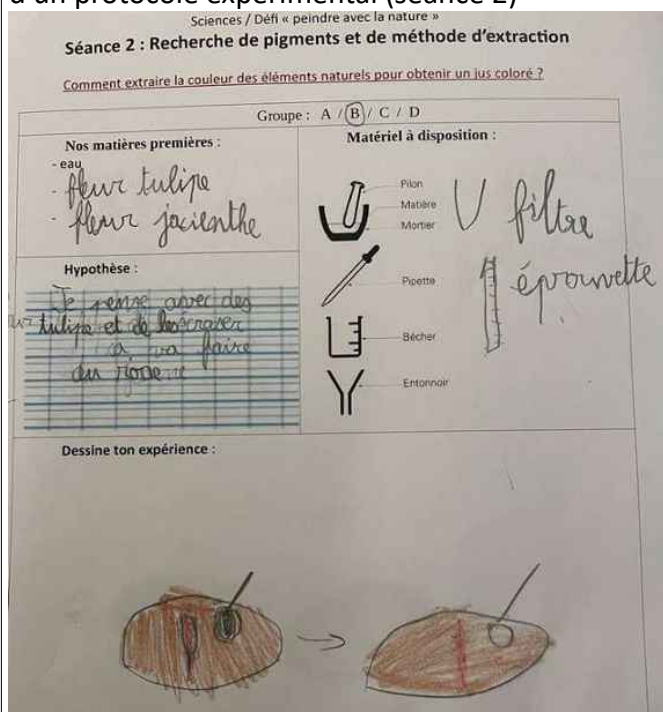 d'un protocole expérimental (séance 2)
Sciences / Défi « peindre avec la nature »
Séance 2 : Recherche de pigments et de méthode d'extraction
Comment extraire la couleur des éléments naturels pour obtenir un jus coloré ?
Groupe : A / B / C / D
Nos matières premières :
- eau
- fleur tulipe
- fleur jacienthe
Matériel à disposition :
Pilon
Matière
Mortier
filtre
Pipette
éprouvette
Bécher
Entonnoir
Hypothèse :
Je pense avec des
tulipe et de les écraser
ça va faire
du
Dessine ton expérience :